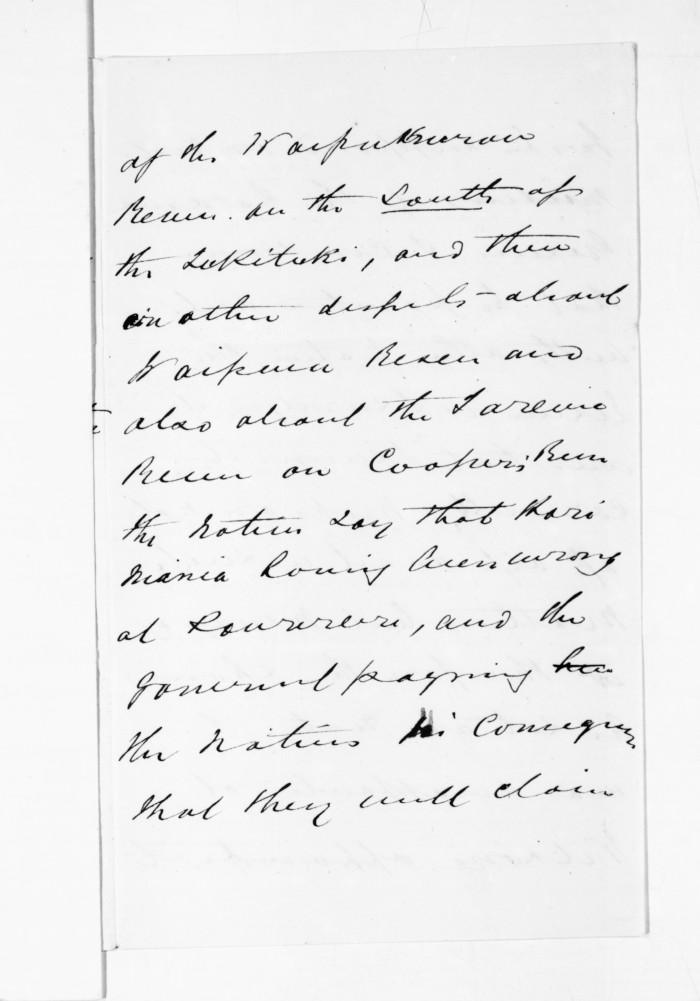 of the Waipukurau
Reserve on the South of
the Tukituki, and then
another dispute about
Waipawa Reserve and
also about the Tareiwa
Reserve on Cooper's Run
the Natives say that
having been wrong
at and the
Government paying
the Natives in consequence
that they will claim